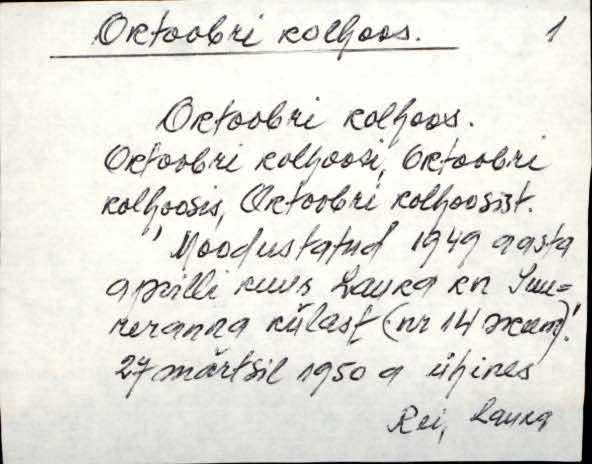 Oktoobri kolhoos. 1
Oktoobri kolhoos.
Oktoobri kolhoosi, Oktoobri
kolhoosis, Oktoobri kolhoosist.
' Moodustatud 1949 aasta
aprilli kuus Lauka kn
külast (nr 14
27 märtsil 1950 a ühines
Rei, Lauka